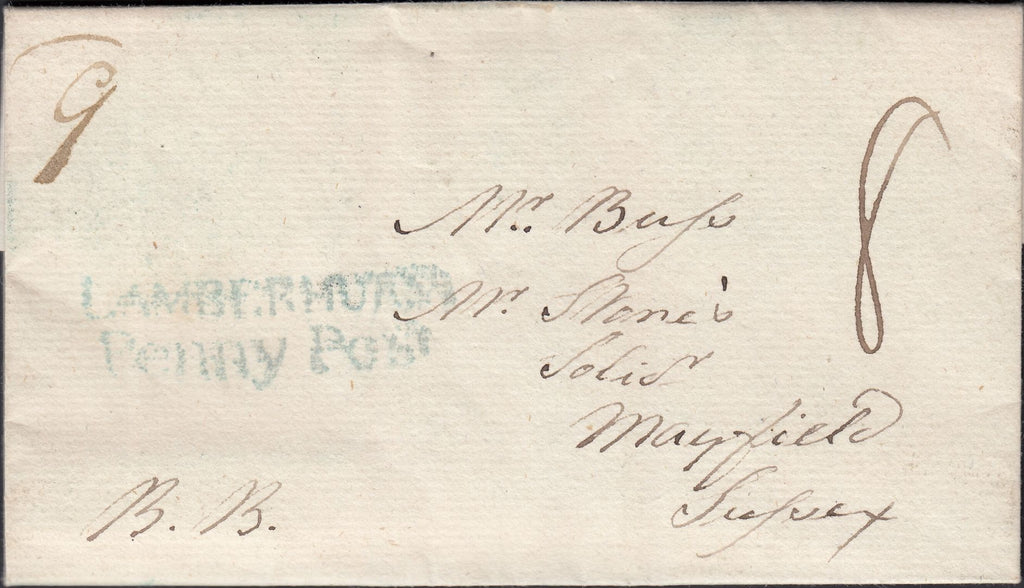 9
8
Mr. Buss
LAMBERHURST
Mr. Stone's
Penny Post
Solicr
Mayfield
B. B.
Sussex